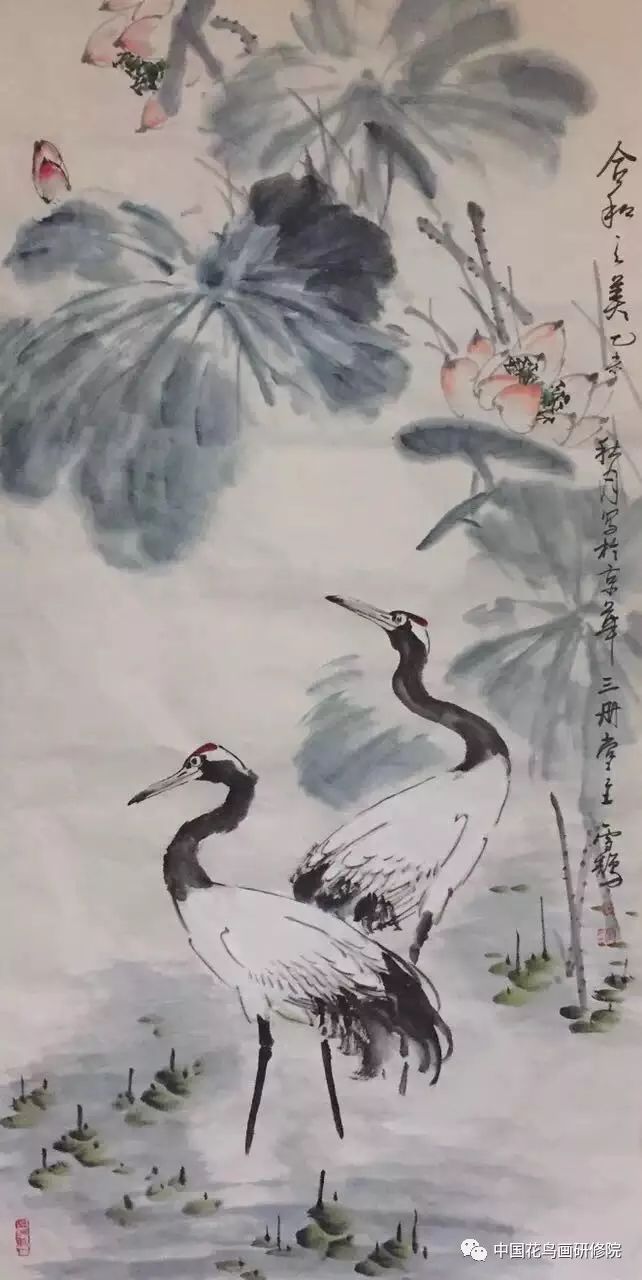 合和之美 乙未秋月写於京華三册堂主雪鶴
中国花鸟画研修院